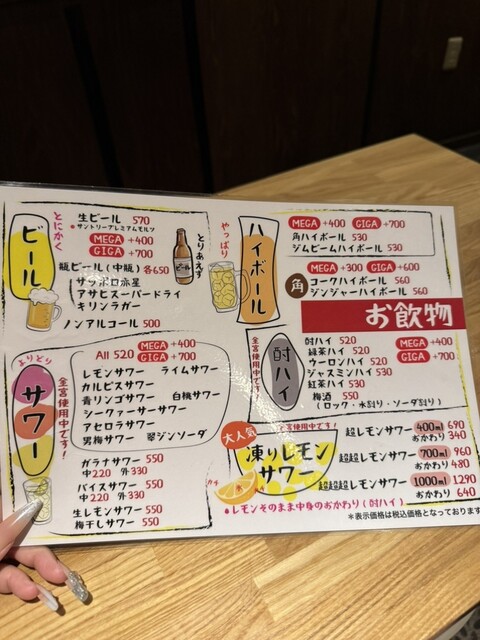 とにかく
ビール
生ビール 570
●サントリープレミアムモルツ
MEGA +400
GIGA +700
瓶ビール(中瓶) 各650
サッポロ赤星
アサヒスーパードライ
キリンラガー
ノンアルコール 500
とりあえず
ビール
やっぱり
ハイボール
MEGA +400 GIGA +700
角ハイボール 530
ジムビームハイボール 530
MEGA +300 GIGA +600
角
コークハイボール 560
ジンジャーハイボール 560
お飲物
よりどり
サワー
全宮使用中です!
All 520
MEGA +400
GIGA +700
レモンサワー ライムサワー
カルピスサワー
青リンゴサワー 白桃サワー
シークァーサーサワー
アセロラサワー
男梅サワー 翠ジンソーダ
ガラナサワー 550
中220 外330
バイスサワー 550
中220 外330
生レモンサワー 550
梅干しサワー 550
全宮使用中です
酎ハイ
酎ハイ 520
緑茶ハイ 520
ウーロンハイ 520
ジャスミンハイ 530
紅茶ハイ 530
梅酒 550
(ロック・水割り・ソーダ割り)
MEGA +400
GIGA +700
大人気
宮使用中です!
凍りレモンサワー
超レモンサワー 400ml 690
おかわり 340
超超レモンサワー 700ml 960
おかわり 480
超超超レモンサワー 1000ml 1290
おかわり 640
●レモンそのまま中身のおかわり(酎ハイ)
*表示価格は税込価格となっております